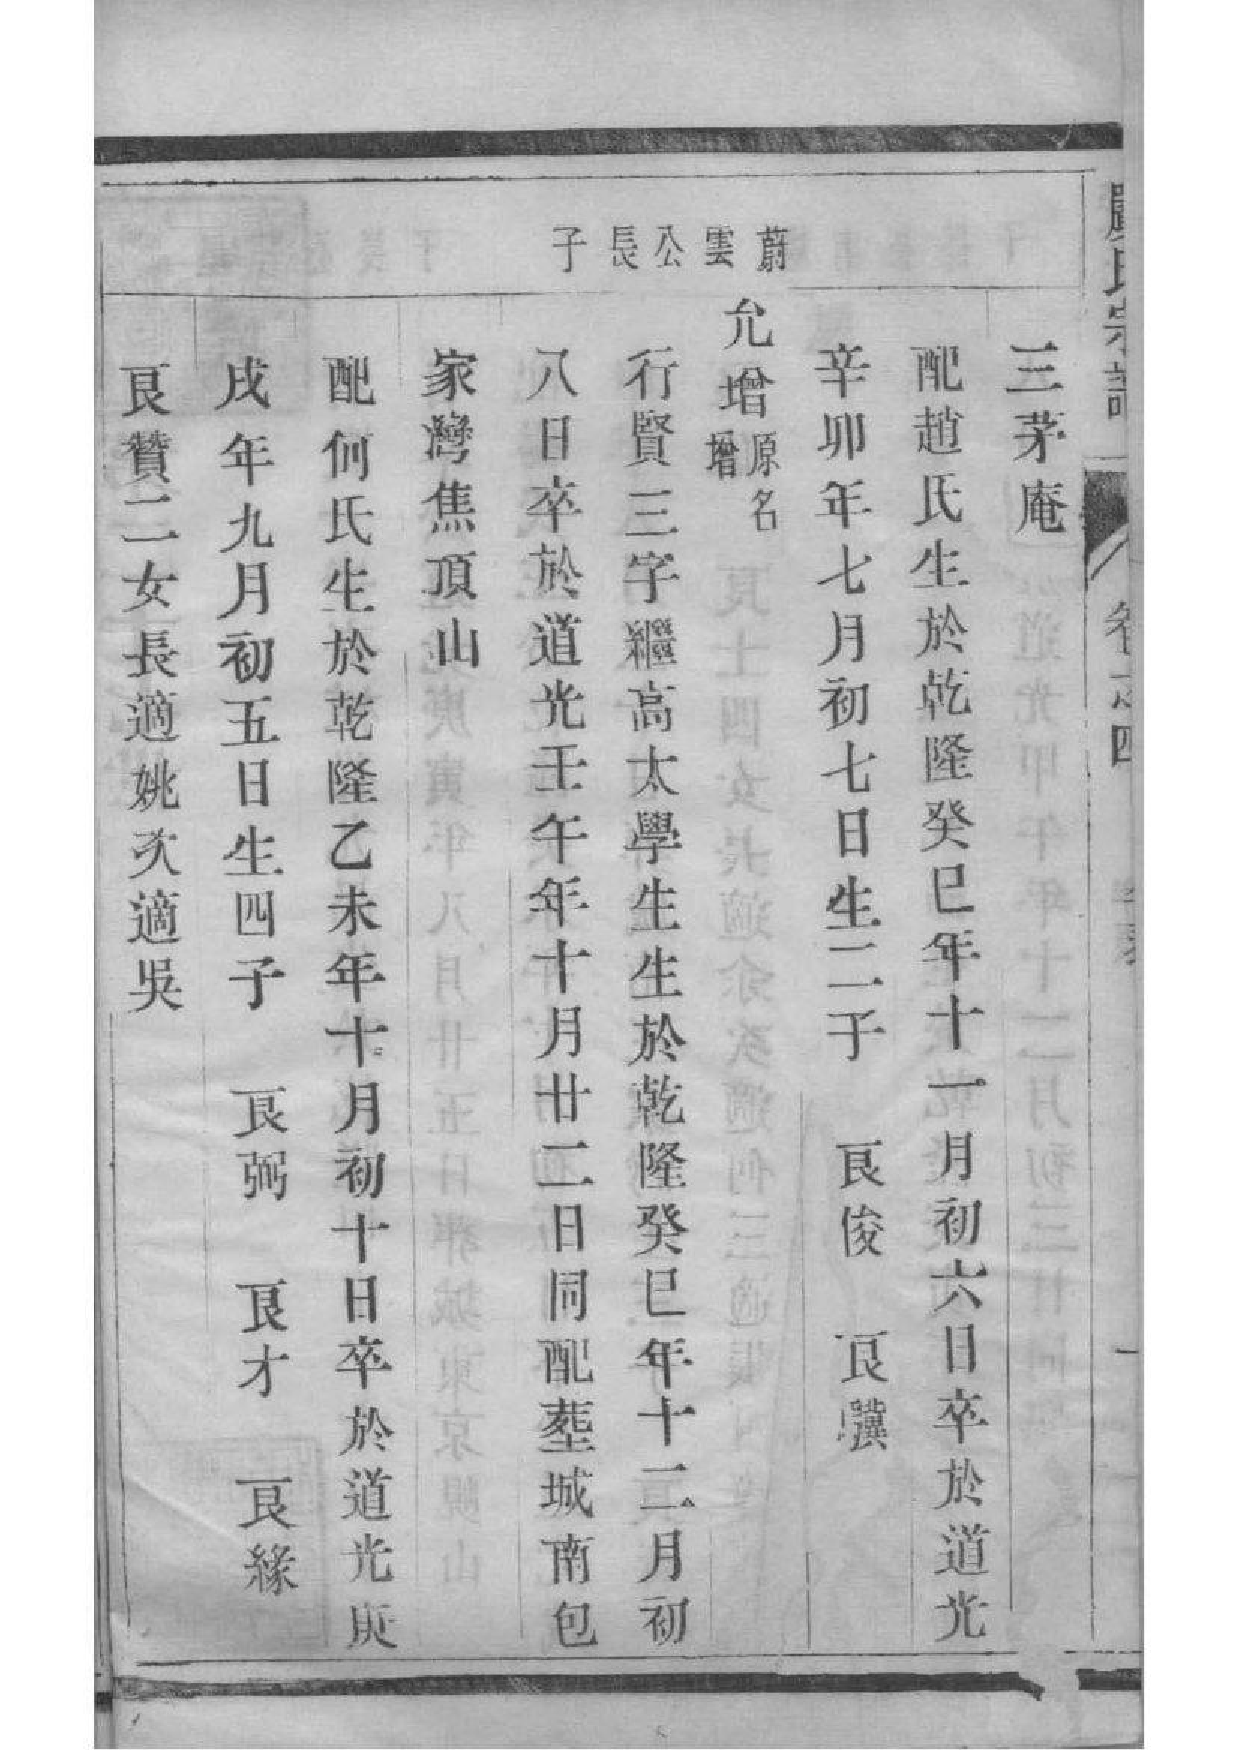 嚴氏宗譜
卷之四
三茅庵
配趙氏生於乾隆癸巳年十一月初六日卒於道光
辛卯年七月初七日生二子　良俊　良驥
蔚雲公長子
允增原名
增
行賢三字繼高太學生生於乾隆癸巳年十二月初
八日卒於道光壬午年十月廿二日同配塟城南包
家灣焦頂山
配何氏生於乾隆乙未年十月初十日卒於道光庚
戌年九月初五日生四子　良弼　良才　良緣
良贊二女長適姚次適吳